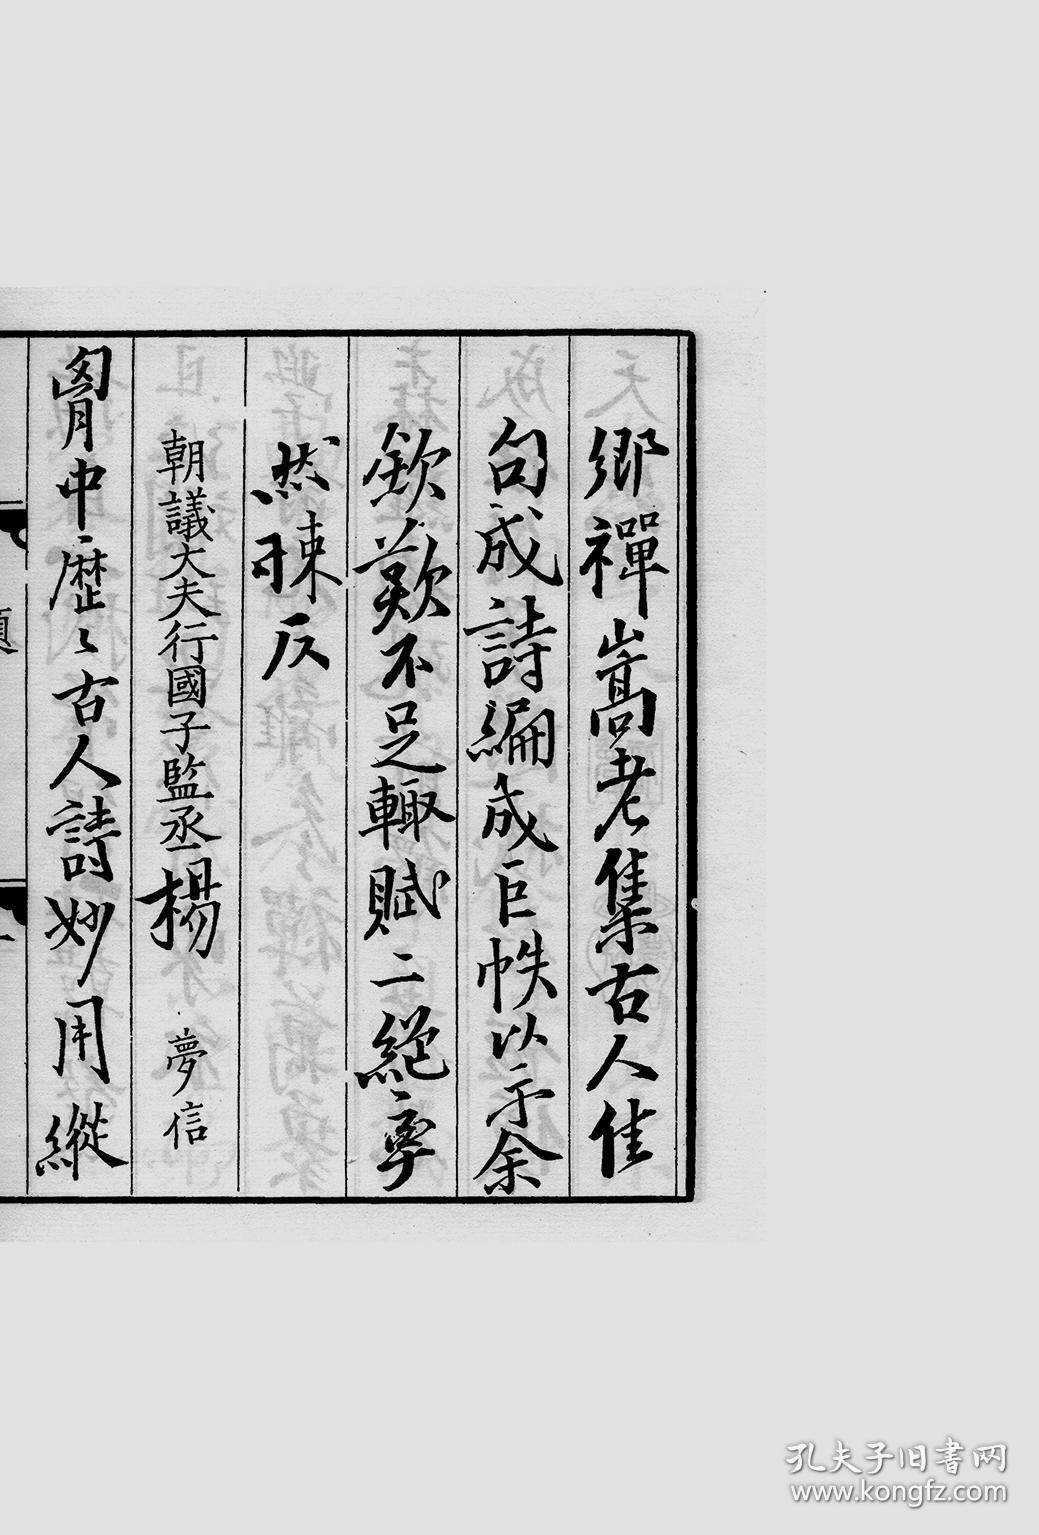 鄉禪嵩老集古人佳
句成詩編成巨帙以示余
欽歎不足輙賦二絕寧
然
朝議大夫行國子監丞楊 夢信
胷中歷〻古人詩妙用縱
孔夫子旧書网
www.kongfz.com